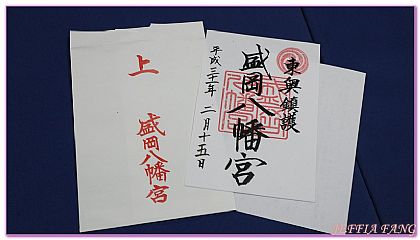 上
盛岡八幡宮
東奥鎮護
盛岡八幡宮
平成三十一年 二月十五日
JEFFIA FANG